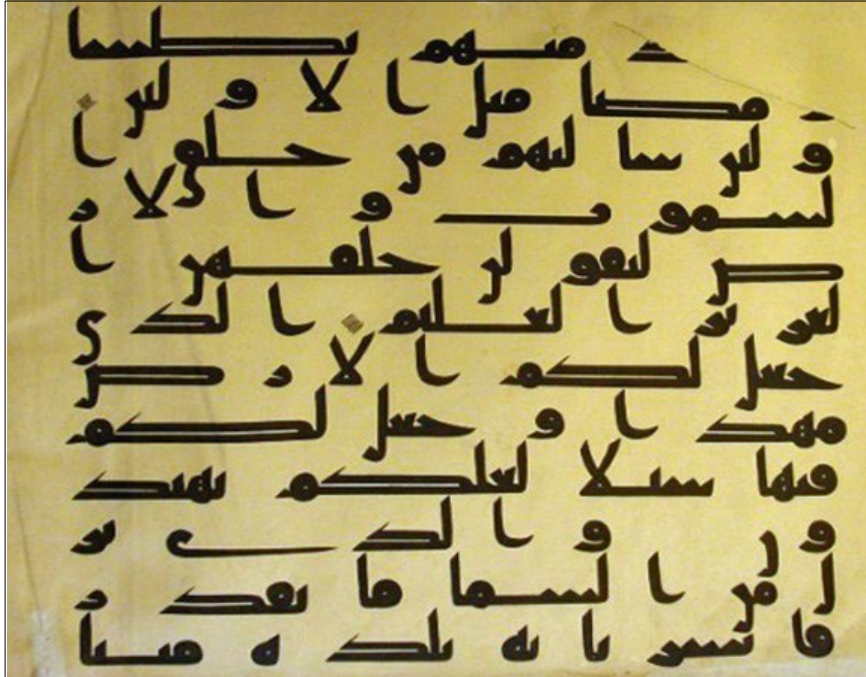 منهم بطشا
ومضى مثل الاولين
ولين سالتهم من خلق ا
لسموت والار
ض ليقولن خلقهن ا
لعزيز العليم الذي
جعل لكم الارض
مهدا وجعل لكم
فيها سبلا لعلكم تهتد
ون والذي نز
ل من السما ما بقدر
فانشرنا به بلده ميتا